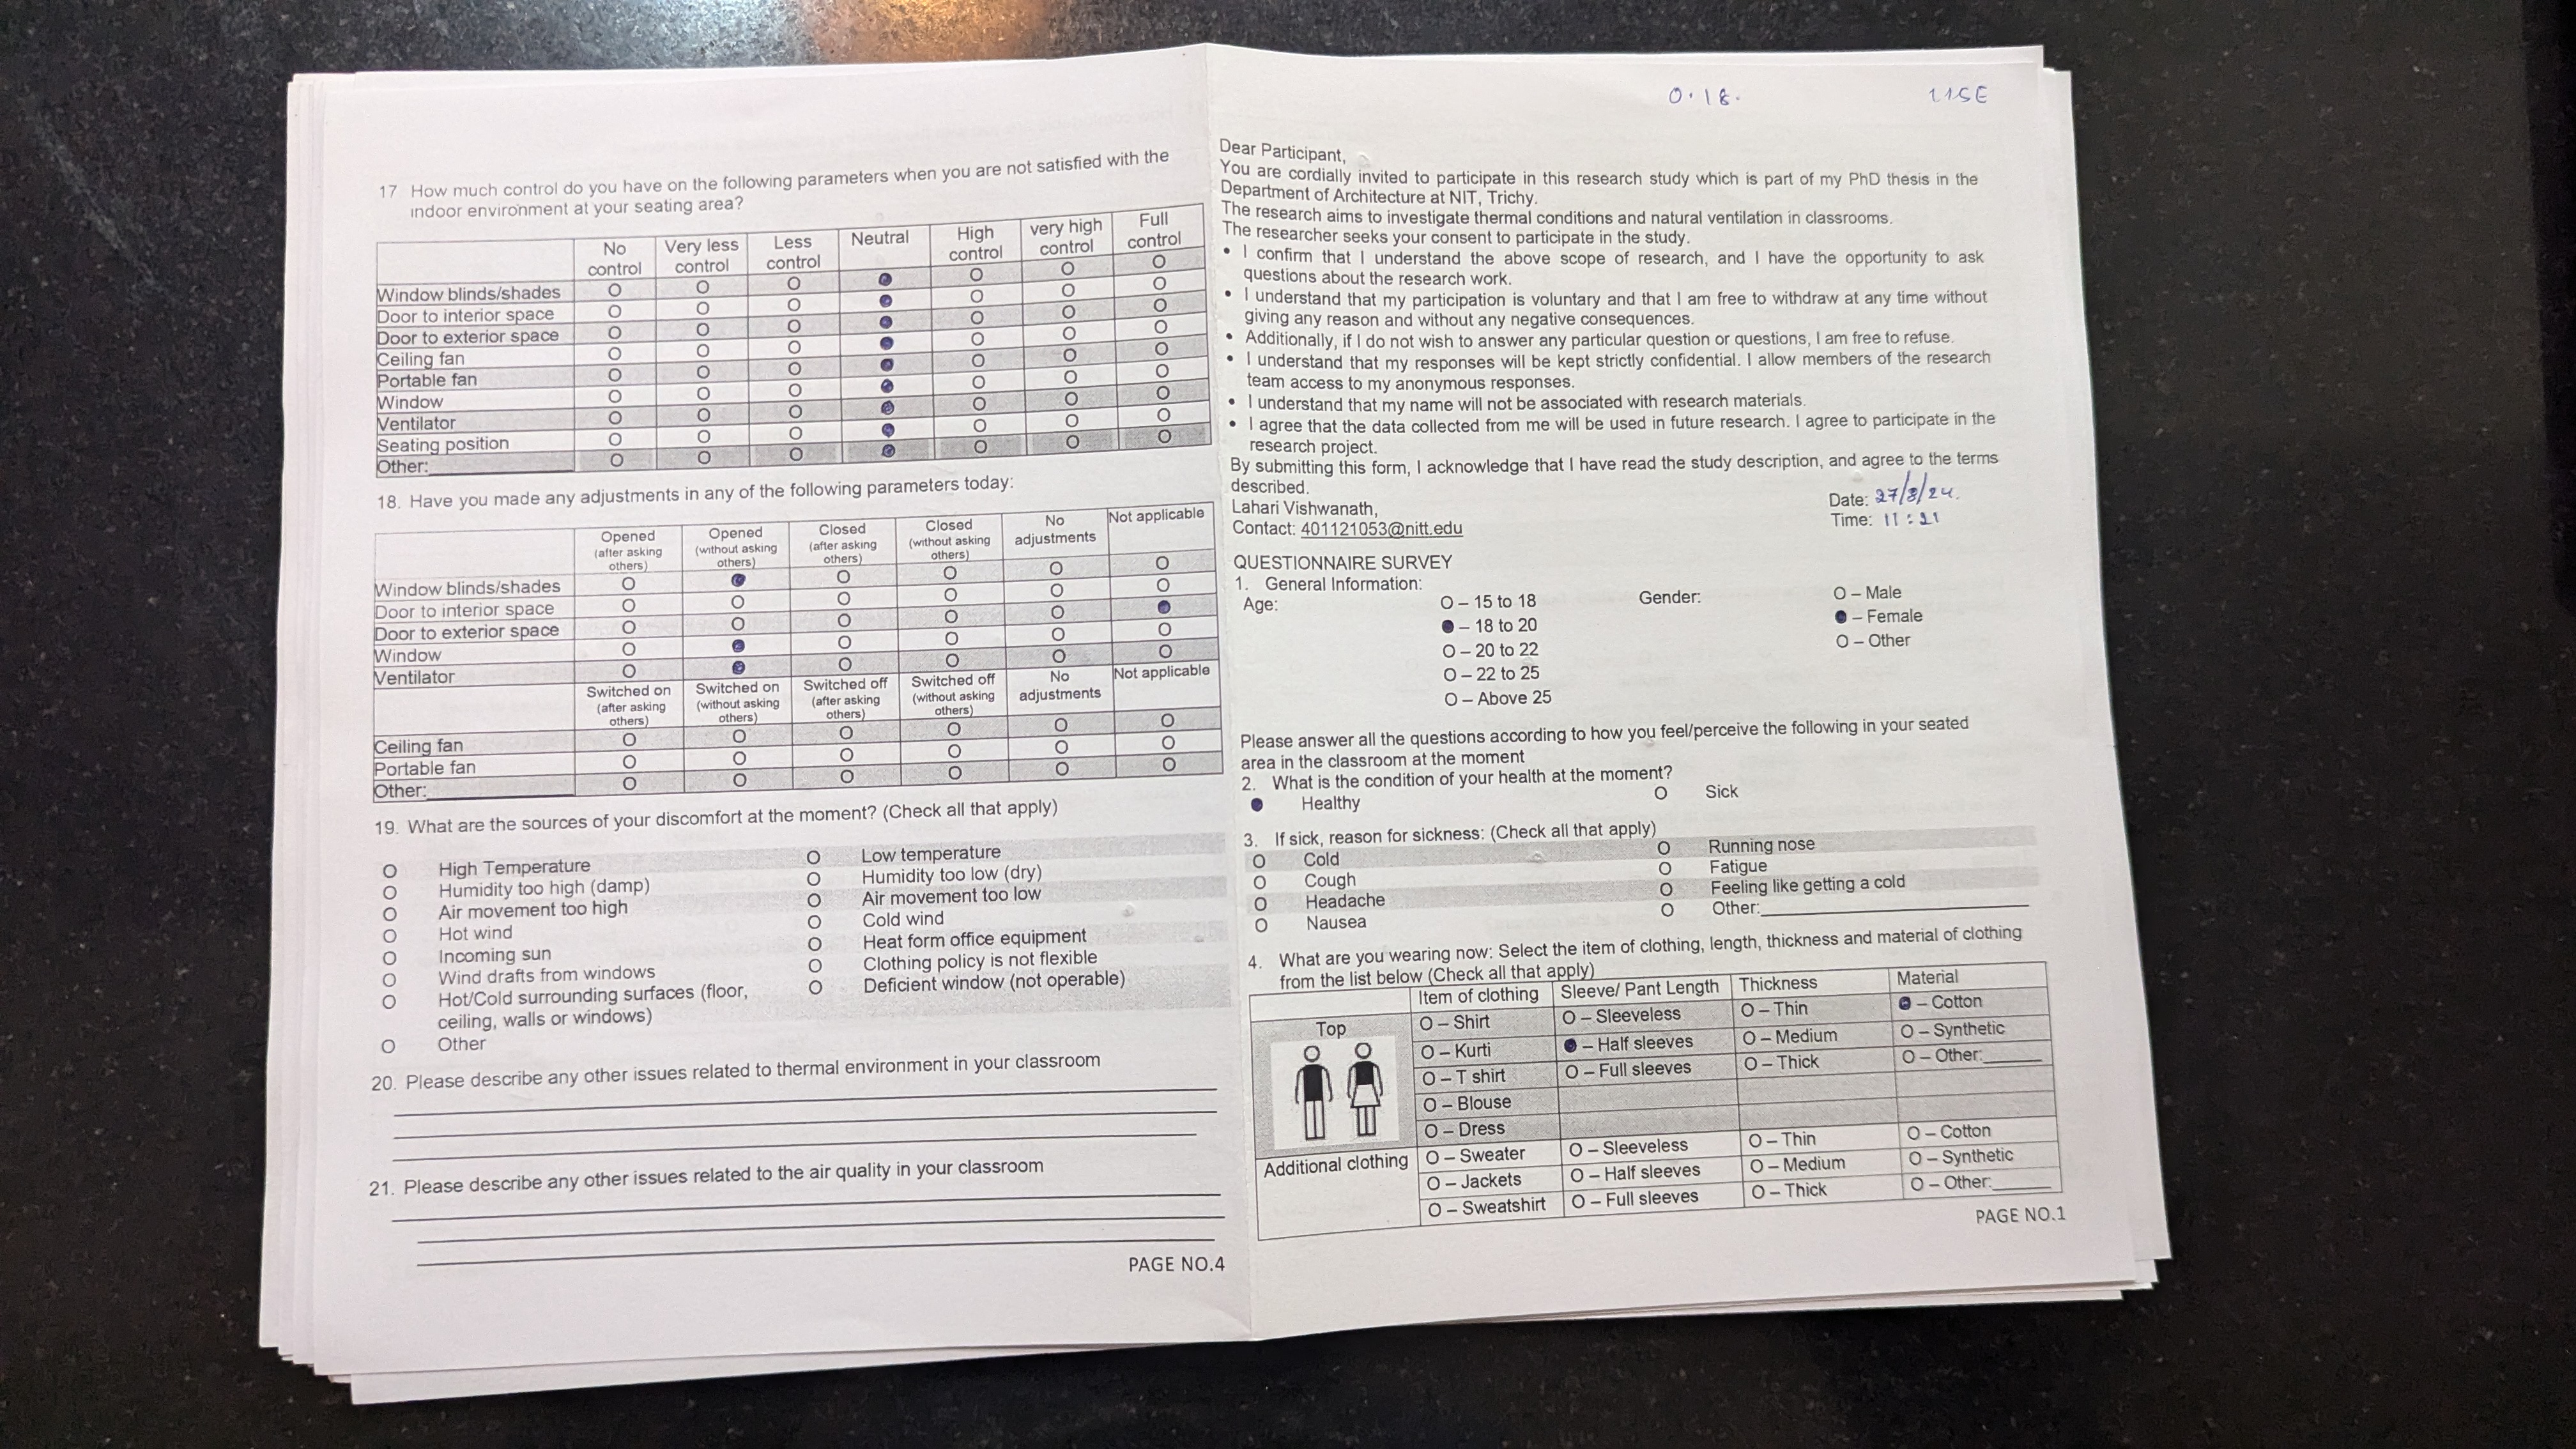 17 How much control do you have on the following parameters when you are not satisfied with the
indoor environment at your seating area?
No control Very less control Less control Neutral High control very high control Full control
Window blinds/shades O O O ● O O O
Door to interior space O O O ● O O O
Door to exterior space O O O ● O O O
Ceiling fan O O O ● O O O
Portable fan O O O ● O O O
Window O O O ● O O O
Ventilator O O O ● O O O
Seating position O O O ● O O O
Other: O O O ● O O O
18. Have you made any adjustments in any of the following parameters today:
Opened (after asking others) Opened (without asking others) Closed (after asking others) Closed (without asking others) No adjustments Not applicable
Window blinds/shades O ● O O O O
Door to interior space O O O O O O
Door to exterior space O O O O O ●
Window O ● O O O O
Ventilator O ● O O O O
Switched on (after asking others) Switched on (without asking others) Switched off (after asking others) Switched off (without asking others) No adjustments Not applicable
Ceiling fan O O O O O O
Portable fan O O O O O O
Other: O O O O O O
19. What are the sources of your discomfort at the moment? (Check all that apply)
O High Temperature O Low temperature
O Humidity too high (damp) O Humidity too low (dry)
O Air movement too high O Air movement too low
O Hot wind O Cold wind
O Incoming sun O Heat form office equipment
O Wind drafts from windows O Clothing policy is not flexible
O Hot/Cold surrounding surfaces (floor, O Deficient window (not operable)
ceiling, walls or windows)
O Other
20. Please describe any other issues related to thermal environment in your classroom
21. Please describe any other issues related to the air quality in your classroom
PAGE NO.4
0.18.
Dear Participant,
You are cordially invited to participate in this research study which is part of my PhD thesis in the
Department of Architecture at NIT, Trichy.
The research aims to investigate thermal conditions and natural ventilation in classrooms.
The researcher seeks your consent to participate in the study.
• I confirm that I understand the above scope of research, and I have the opportunity to ask
questions about the research work.
• I understand that my participation is voluntary and that I am free to withdraw at any time without
giving any reason and without any negative consequences.
• Additionally, if I do not wish to answer any particular question or questions, I am free to refuse.
• I understand that my responses will be kept strictly confidential. I allow members of the research
team access to my anonymous responses.
• I understand that my name will not be associated with research materials.
• I agree that the data collected from me will be used in future research. I agree to participate in the
research project.
By submitting this form, I acknowledge that I have read the study description, and agree to the terms
described.
Lahari Vishwanath,
Contact: 401121053@nitt.edu
Date: 27/8/24.
Time: 11:21
QUESTIONNAIRE SURVEY
1. General Information:
Age: O – 15 to 18 Gender: O – Male
● – 18 to 20 ● – Female
O – 20 to 22 O – Other
O – 22 to 25
O – Above 25
Please answer all the questions according to how you feel/perceive the following in your seated
area in the classroom at the moment
2. What is the condition of your health at the moment?
● Healthy O Sick
3. If sick, reason for sickness: (Check all that apply)
O Cold O Running nose
O Cough O Fatigue
O Headache O Feeling like getting a cold
O Nausea O Other:
4. What are you wearing now: Select the item of clothing, length, thickness and material of clothing
from the list below (Check all that apply)
Item of clothing Sleeve/ Pant Length Thickness Material
Top O – Shirt O – Sleeveless O – Thin ● – Cotton
O – Kurti ● – Half sleeves O – Medium O – Synthetic
O – T shirt O – Full sleeves O – Thick O – Other:
O – Blouse
O – Dress
Additional clothing O – Sweater O – Sleeveless O – Thin O – Cotton
O – Jackets O – Half sleeves O – Medium O – Synthetic
O – Sweatshirt O – Full sleeves O – Thick O – Other:
PAGE NO.1